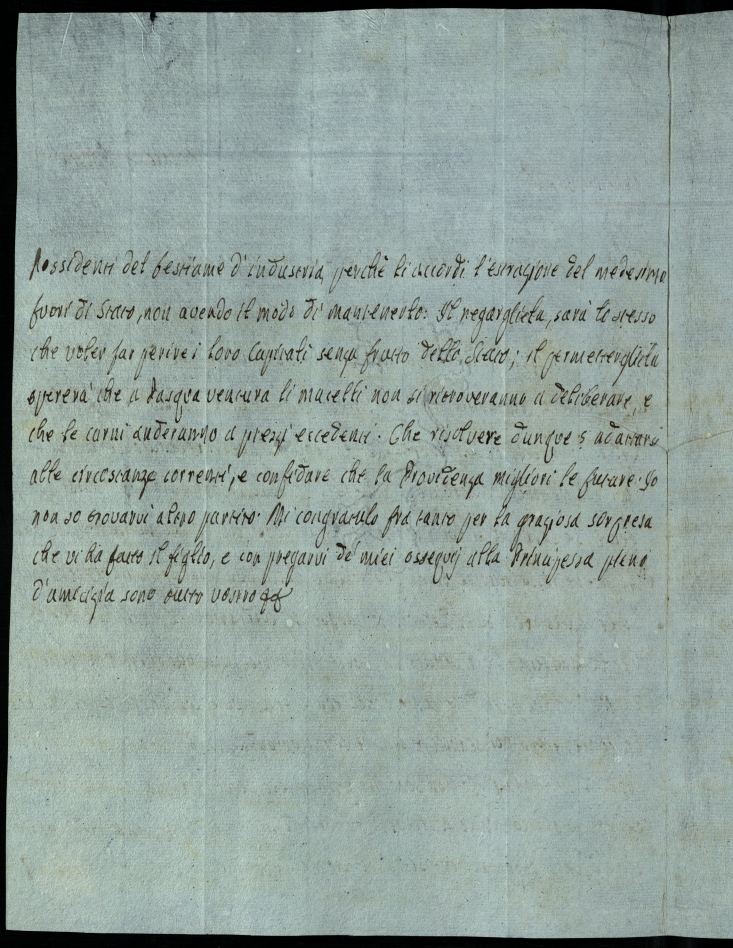 Possidenti del bestiame d'industria, perchè li accordi l'estrazione del medesimo
fuori di Stato, non avendo il modo di mantenerlo: Il negargliela, sarà lo stesso
che voler far perire i loro Capitali senza frutto dello Stato; il permettergliela
opererà che a Pasqua ventura li macelli non si ritroveranno a deliberare, e
che le carni anderanno a prezzi eccedenti. Che risolvere dunque? adattarsi
alle circostanze correnti, e confidare che la Providenza migliori le future. Io
non so trovarvi altro partito. Mi congratulo fra tanto per la graziosa sorpresa
che vi ha fatto il figlio, e con pregarvi de' miei ossequj alla Principessa pieno
d'amicizia sono tutto vostro